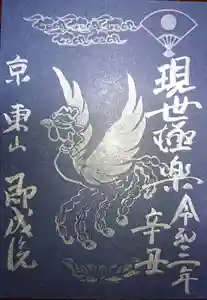 現世極楽
令和三年
辛丑
京東山
即成院